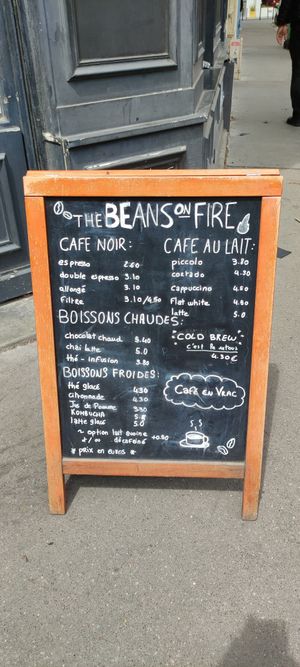 THE BEANS ON FIRE
CAFE NOIR:
espresso 2.60
double espresso 3.10
allongé 3.10
Filtre 3.10/4.50
CAFE AU LAIT:
piccolo 3.80
cortado 4.30
cappuccino 4.80
Flat white 4.80
latte 5.0
BOISSONS CHAUDES:
chocolat chaud 5.40
chai latte 5.0
thé - infusion 3.80
"COLD BREW"
4.30€
BOISSONS FROIDES:
thé glacé 4.30
citronnade 4.30
Jus de Pomme 3.30
KOMBUCHA 5.0
latte glacé 5.0
~ option lait avoine +0.50
+/∞ décaféiné
* prix en euros *
Café en Vrac